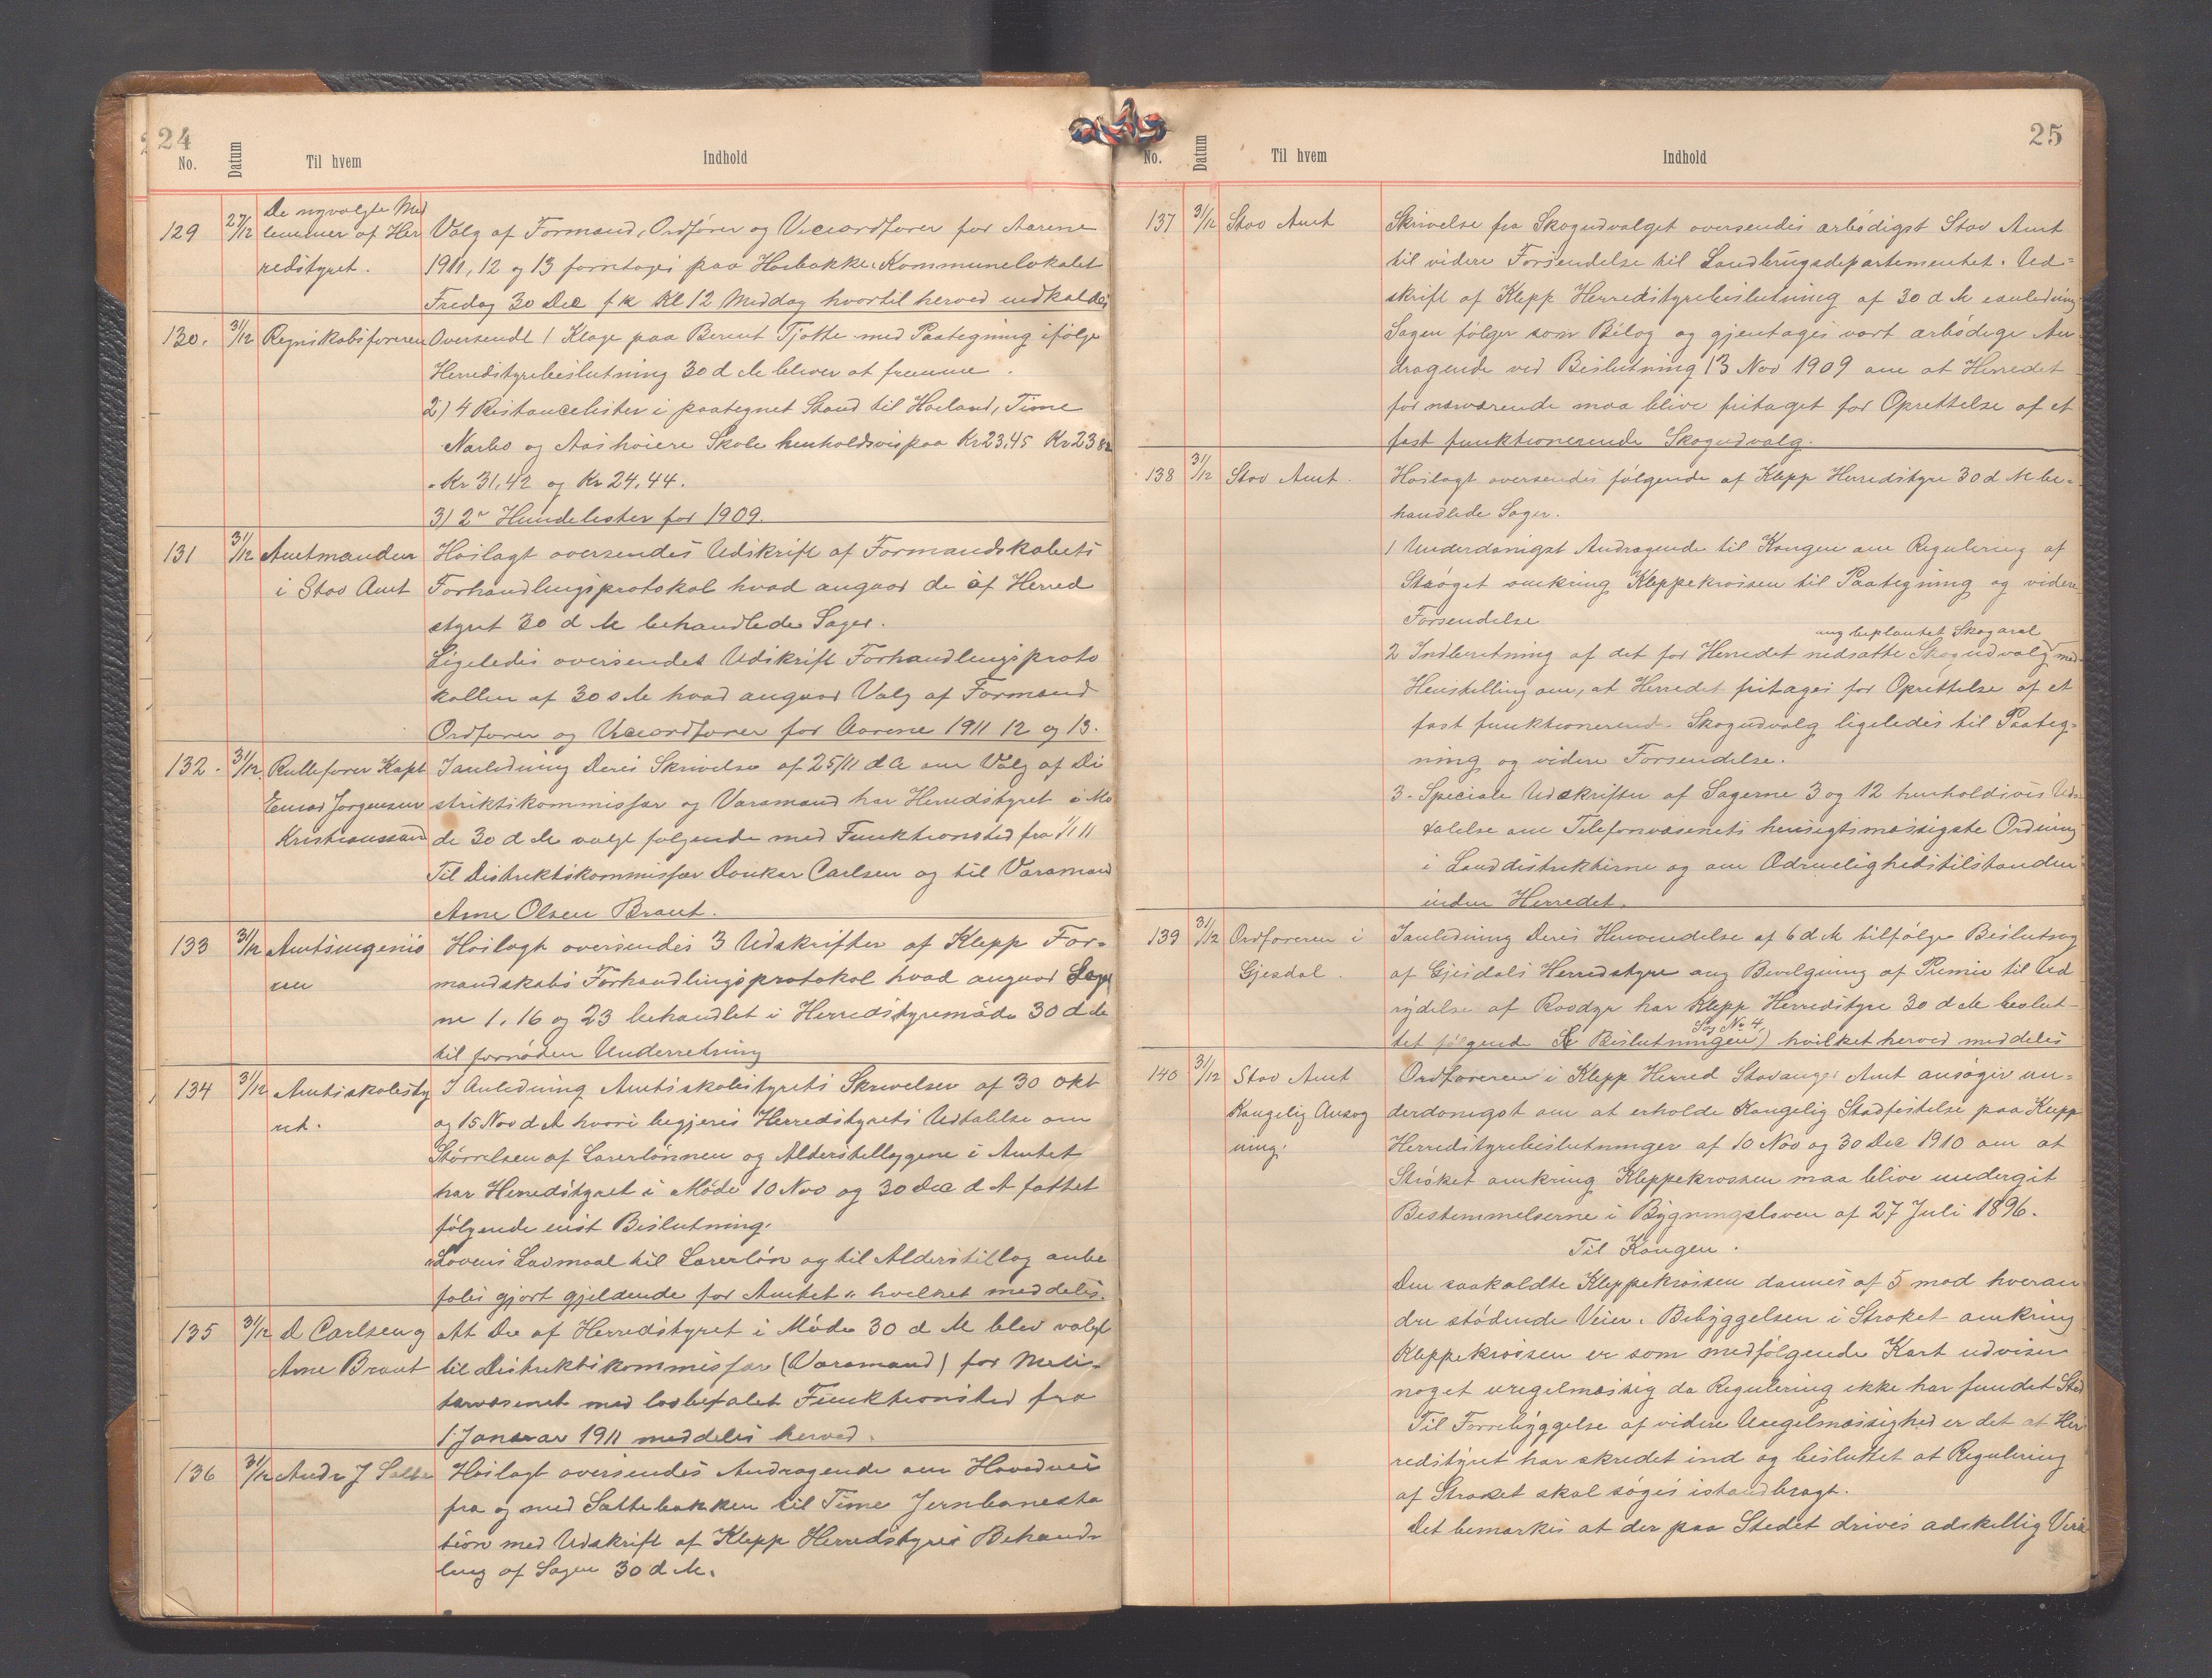 24
No. Datum Til hvem Indhold
129 27/12 De nyvalgte Med
lemmer af Her
redstyret.
Valg af Formand, Ordfører og Viceordfører for Aarene
1911, 12 og 13 foretages paa Kommunelokalet
Fredag 30 Dec f k Kl 12 Middag hvortil herved indkaldes
130. 31/12 Regnskabsføreren
Oversendt 1 Klage paa Berent Tjøtte med Paategning ifølge
Herredstyrebeslutning 30 d M bliver at fremme.
2) 4 Restancelister i paategnet Stand til Haeland, Time
Narbo og Aashøiere Skole henholdsvis paa Kr 23,45 Kr 23 82
Kr 31,42 og Kr 24,44.
3) 2 Hundelister for 1909.
131 31/12 Amtmanden
i Stav Amt
Hoslagt oversendes Udskrift af Formandskabets
Forhandlingsprotokol hvad angaar de af Herred
styret 30 d M behandlede Sager.
Ligeledes oversendes Udskrift Forhandlingsproto
kollen af 30 d M hvad angaar Valg af Formand
Ordfører og Viceordfører for Aarene 1911 12 og 13.
132. 31/12. Rullefører Kapt
Jørgensen
Kristianssand
Ianledning Deres Skrivelse af 25/11 d A om Valg af Di
striktskommissær og Varamand har Herredstyret i Mø
de 30 d M valgt følgende med Funktionstid fra 1/1 11
Til Distriktskommissær Carlsen og til Varamand
Arne Olsen Braut.
133 31/12 Amtsingeniø
ren
Hoslagt oversendes 3 Udskrifter af Klepp For-
mandskabs Forhandlingsprotokol hvad angaar Sage
ne 1, 16 og 23 behandlet i Herredstyremøde 30 d M
til fornøden Underretning
134 31/12 Amtsskolesty
ret.
I Anledning Amtsskolestyrets Skrivelser af 30 Okt
og 15 Nov d A hvori begjæres Herredstyrets Udtalelse om
Størrelsen af Lærerlønnen og Alderstillæggene i Amtet
har Herredstyret i Møde 10 Nov og 30 Dec d A fattet
følgende enst Beslutning.
"Lovens Lavmaal til Lærerløn og til Alderstillæg anbe
fales gjort gjeldende for Amtet" hvilket meddeles.
135 31/12 D Carlsen og
Arne Braut
At De af Herredstyret i Møde 30 d M blev valgt
til Distriktskommissær (Varamand) for Mili-
tærvæsenet med lovbefalet Funktionstid fra
1 Januar 1911 meddeles herved.
136 31/12 Andr J Salte
Hoslagt oversendes Andragende om Hovedvei
fra og med Sattebakken til Time Jernbanesta
tion med Udskrift af Klepp Herredstyres Behand-
ling af Sagen 30 d M.
25
No. Datum Til hvem Indhold
137 31/12 Stav Amt
Skrivelse fra Skogudvalget oversendes ærbødigst Stav Amt
til videre Forsendelse til Landbrugsdepartementet. Ud-
skrift af Klepp Herredstyrebeslutning af 30 d M eanledning
Sagen følger som Bilag og gjentages vort ærbødige An
dragende ved Beslutning 13 Nov 1909 om at Herredet
for nærværende maa blive fritaget for Oprettelse af et
fast funktionerende Skogudvalg.
138 31/12 Stav Amt.
Hoslagt oversendes følgende af Klepp Herredstyre 30 d M be-
handlede Sager.
1 Underdanigst Andragende til Kongen om Regulering af
Strøget omkring Kleppekrossen til Paategning og videre
Forsendelse
ang beplantet Skogareal
2 Indberetning af det for Herredet nedsatte Skogudvalg med
Henstilling om, at Herredet fritages for Oprettelse af et
fast funktionerend. Skogudvalg ligeledes til Paateg-
ning og videre Forsendelse.
3. Speciale Udskrifter af Sagerne 3 og 12 henholdsvis Ud-
talelse om Telefonvæsenets hensigtsmæssigste Ordning
i Landdistrikterne og om Ædruelighedstilstanden
inden Herredet.
139 31/12 Ordføreren i
Gjesdal.
Ianledning Deres Henvendelse af 6 d M tilfølge Beslutning
af Gjesdals Herredstyre ang Bevilgning af Præmie til Ud
rydelse af Rovdyr har Klepp Herredstyre 30 d M beslut-
Sag No 4
tet følgende Se Beslutningen) hvilket herved meddeles
140 31/12 Stav Amt
Kongelig Ansøg
ning.
Ordføreren i Klepp Herred Stavanger Amt ansøger un-
derdanigst om at erholde Kongelig Stadfæstelse paa Klepp
Herredstyrebeslutninger af 10 Nov og 30 Dec 1910 om at
Strøket omkring Kleppekrossen maa blive undergit
Bestemmelserne i Bygningsloven af 27 Juli 1896.
Til Kongen.
Den saakaldte Kleppekrossen dannes af 5 mod hveran
dre stødende Veier. Bebyggelsen i Strøket omkring
Kleppekrossen er som medfølgende Kart udviser
noget uregelmæssig da Regulering ikke har fundet Sted
Til Forrebyggelse af videre Uregelmæssighed er det at Her
redstyret har skredet ind og besluttet at Regulering
af Strøket skal søges istandbragt.
Det bemærkes at der paa Stedet drives adskillig Virk